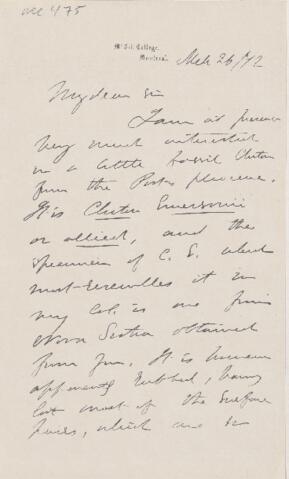 acc 475
McGill College,
Montreal.
Mch 26/72
My dear Sir
I am at present
very much interested
in a little fossil Chiton
from the Post pliocene.
It is Chiton Emersonii
or allied, and the
specimen of C. E. which
most resembles it in
my Col. is one from
Nova Scotia obtained
from you. It is however
apparently rubbed, having
lost most of the surface
, which are in